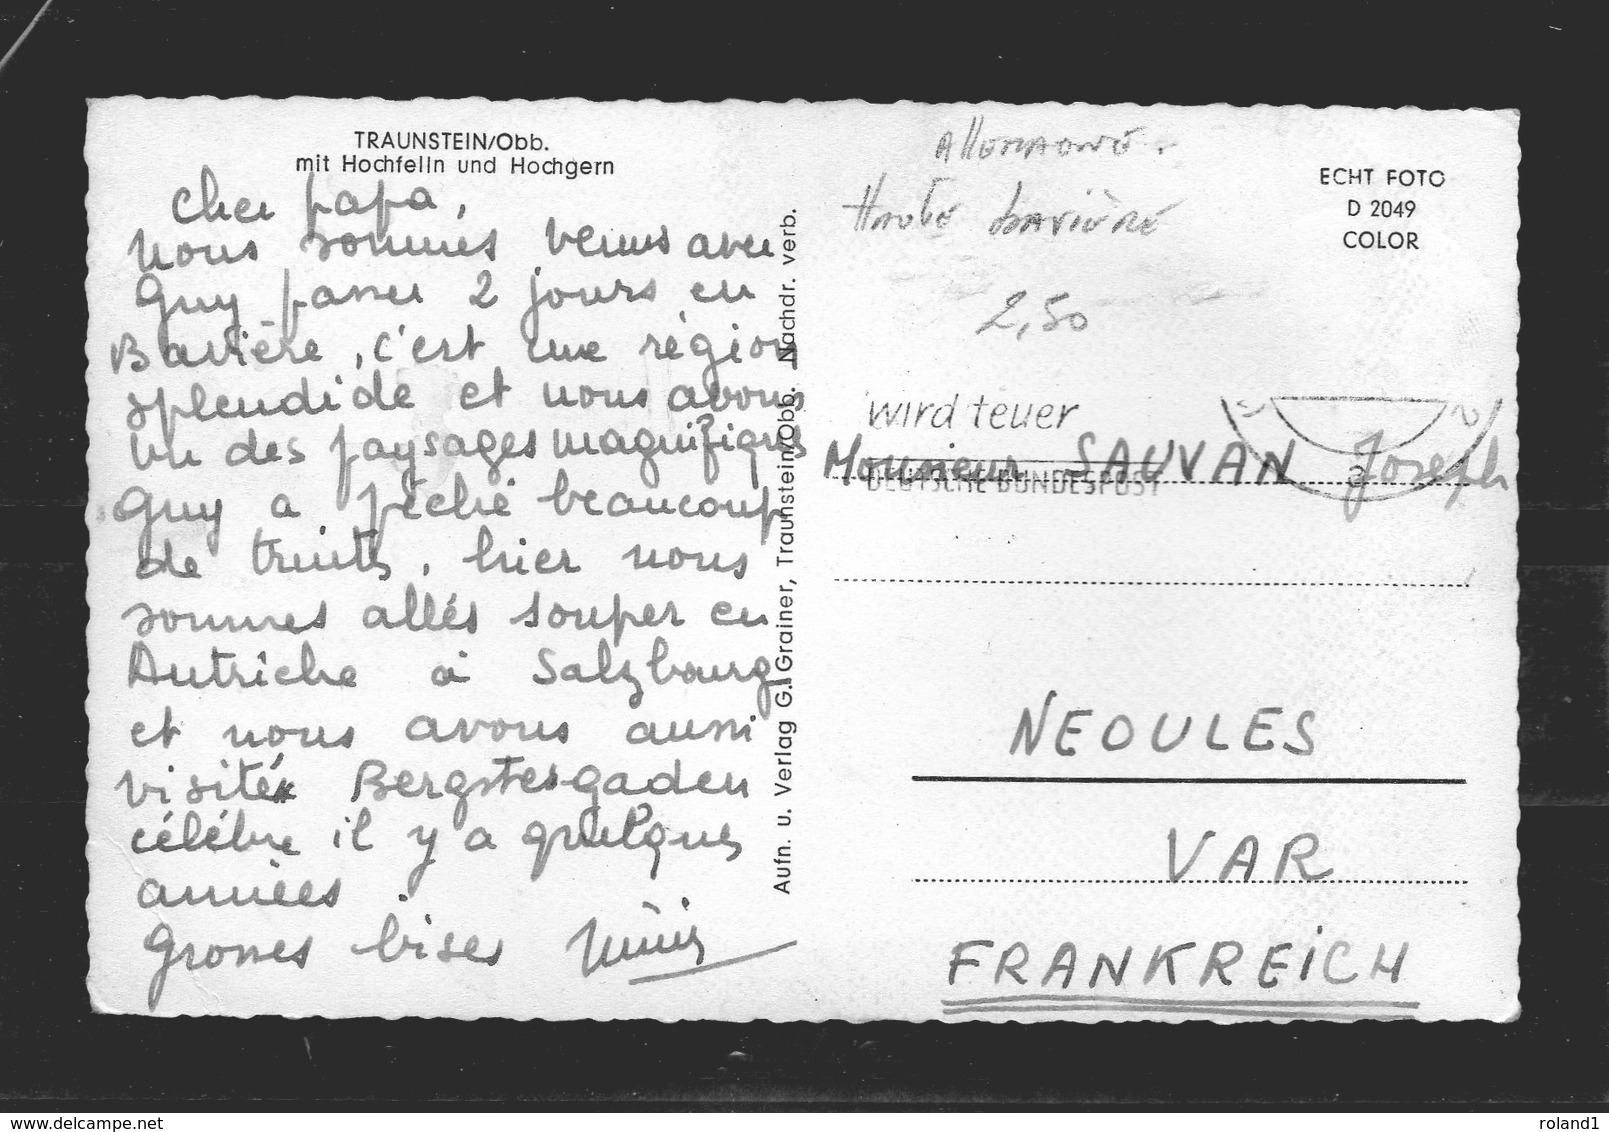 TRAUNSTEIN/Obb.
mit Hochfelln und Hochgern
cher papa,
nous sommes venus avec
Guy passer 2 jours en
Bavière, c'est une région
splendide et nous avons
vu des paysages magnifiques
Guy a pêché beaucoup
de truites, hier nous
sommes allés souper en
Autriche à Salzbourg
et nous avons aussi
visité Bergstesgaden
célèbre il y a quelques
années
Grosses bises
Aufn. u. Verlag G. Grainer, Traunstein/Obb. Nachdr. verb.
Allemagne.
Haute Bavière
2,50
ECHT FOTO
D 2049
COLOR
wird teuer
DEUTSCHE BUNDESPOST
Monsieur SAUVAN Joseph
NEOULES
VAR
FRANKREICH
www.delcampe.net
roland1